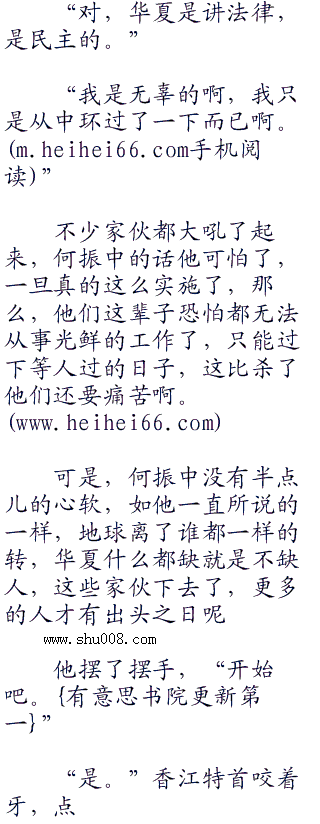 “对，华夏是讲法律，
是民主的。”
“我是无辜的啊，我只
是从中环过了一下而已啊。
(m.heihei66.com手机阅
读)”
不少家伙都大吼了起
来，何振中的话他可怕了，
一旦真的这么实施了，那
么，他们这辈子恐怕都无法
从事光鲜的工作了，只能过
下等人过的日子，这比杀了
他们还要痛苦啊。
(www.heihei66.com)
可是，何振中没有半点
儿的心软，如他一直所说的
一样，地球离了谁都一样的
转，华夏什么都缺就是不缺
人，这些家伙下去了，更多
的人才有出头之日呢
www.shu008.com
他摆了摆手，“开始
吧。{有意思书院更新第
一}”
“是。”香江特首咬着
牙，点